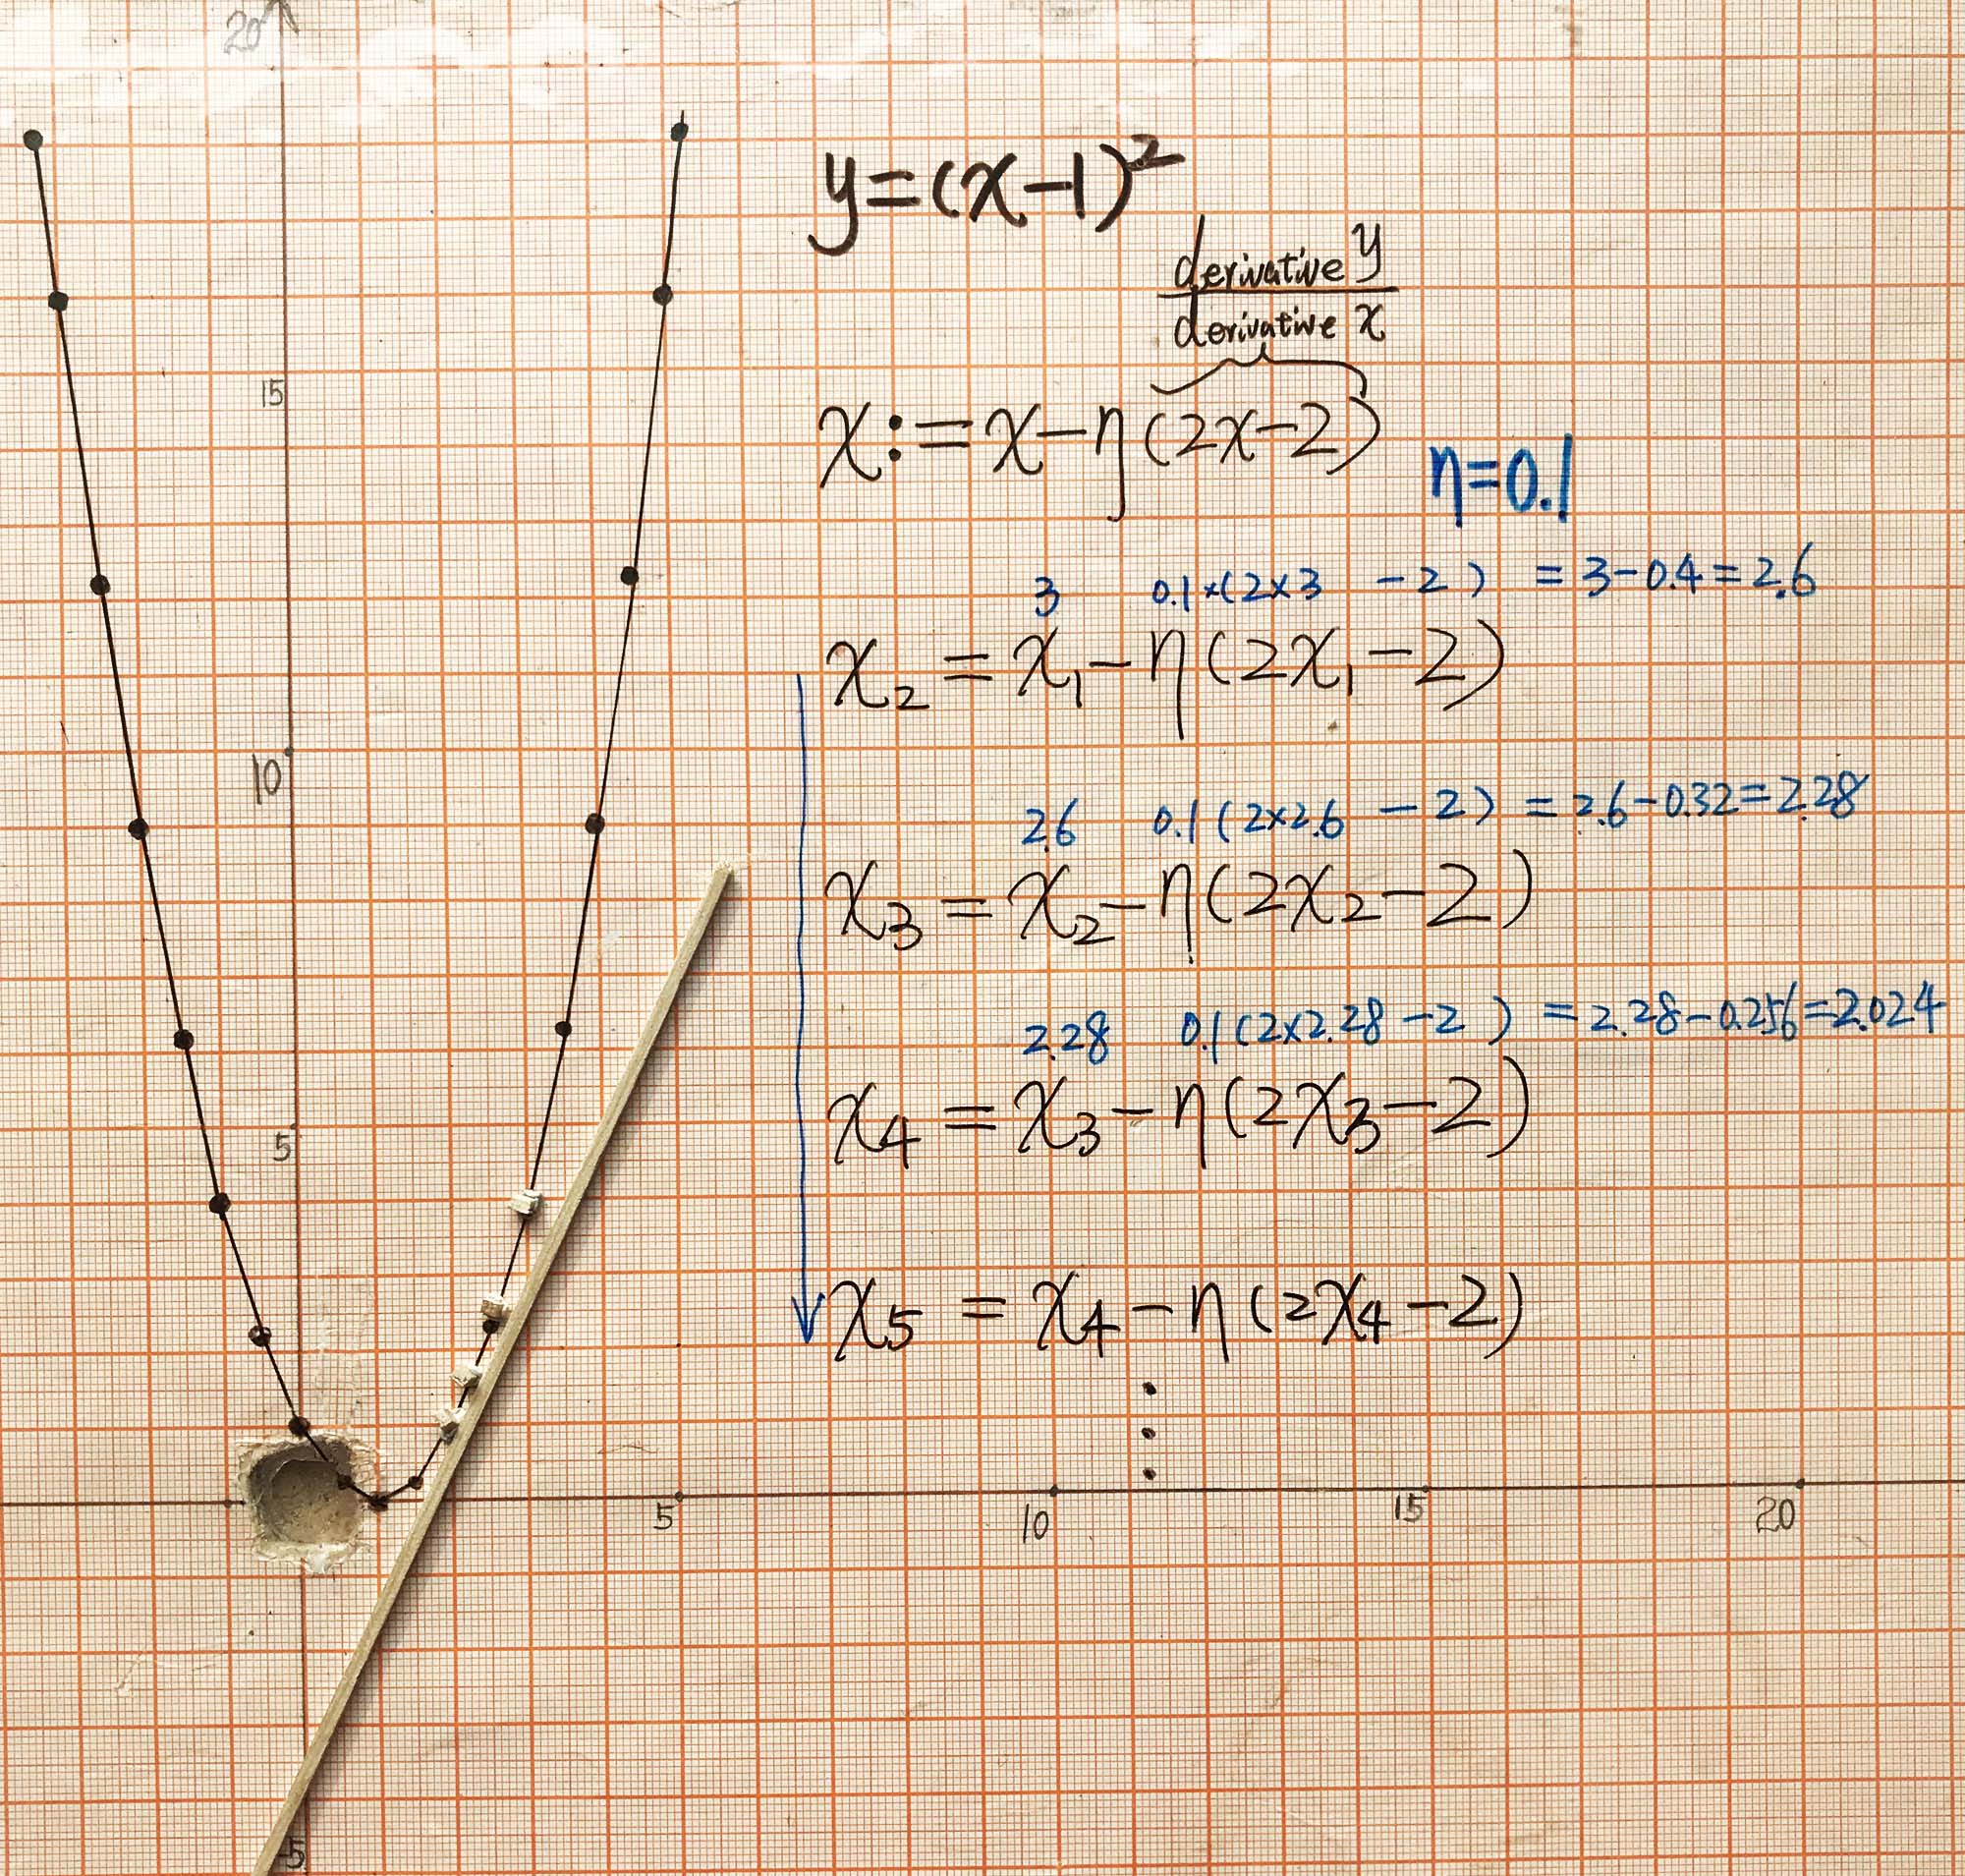 20
y=(x-1)²
derivative y
derivative x
15
x:=x-η(2x-2)
η=0.1
3 0.1×(2×3 -2) =3-0.4=2.6
x₂=x₁-η(2x₁-2)
10
2.6 0.1(2×2.6 -2) =2.6-0.32=2.28
x₃=x₂-η(2x₂-2)
2.28 0.1(2×2.28-2) =2.28-0.256=2.024
x₄=x₃-η(2x₃-2)
5
x₅=x₄-η(2x₄-2)
⋮
5 10 15 20
-5